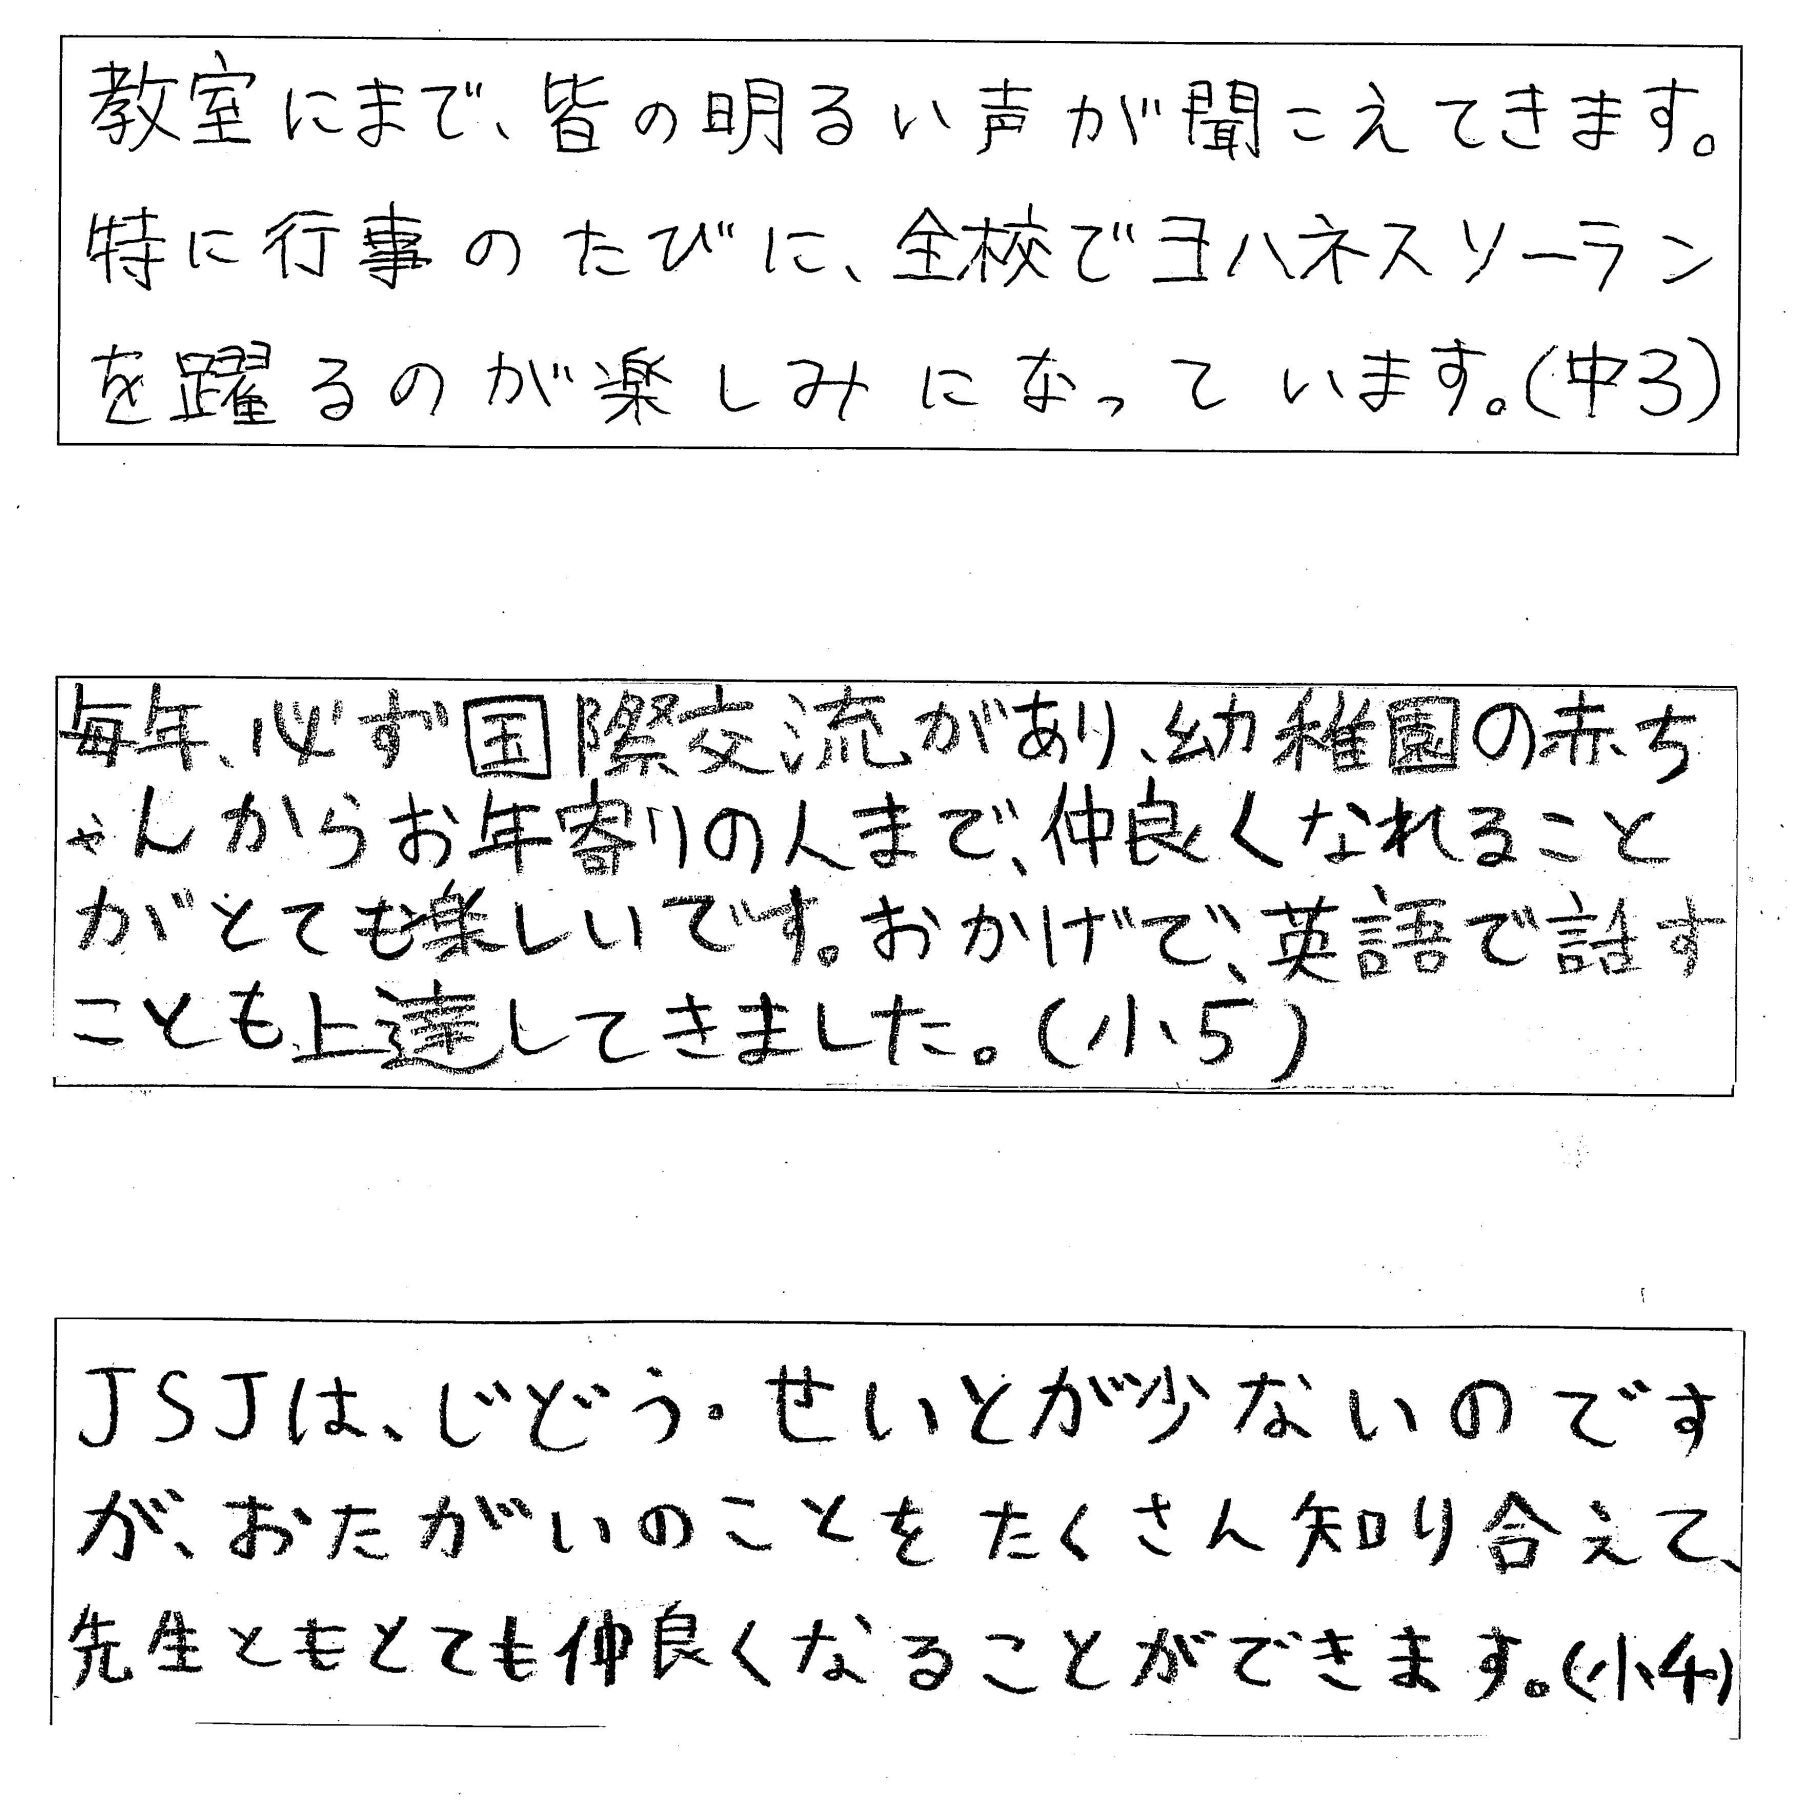 教室にまで、皆の明るい声が聞こえてきます。
特に行事のたびに、全校でヨハネスソーラン
を躍るのが楽しみになっています。(中3)
毎年、必ず国際交流があり、幼稚園の赤ち
ゃんからお年寄りの人まで、仲良くなれること
がとても楽しいです。おかげで、英語で話す
ことも上達してきました。(小5)
JSJは、じどう・せいとが少ないのです
が、おたがいのことをたくさん知り合えて、
先生ともとても仲良くなることができます。(小4)